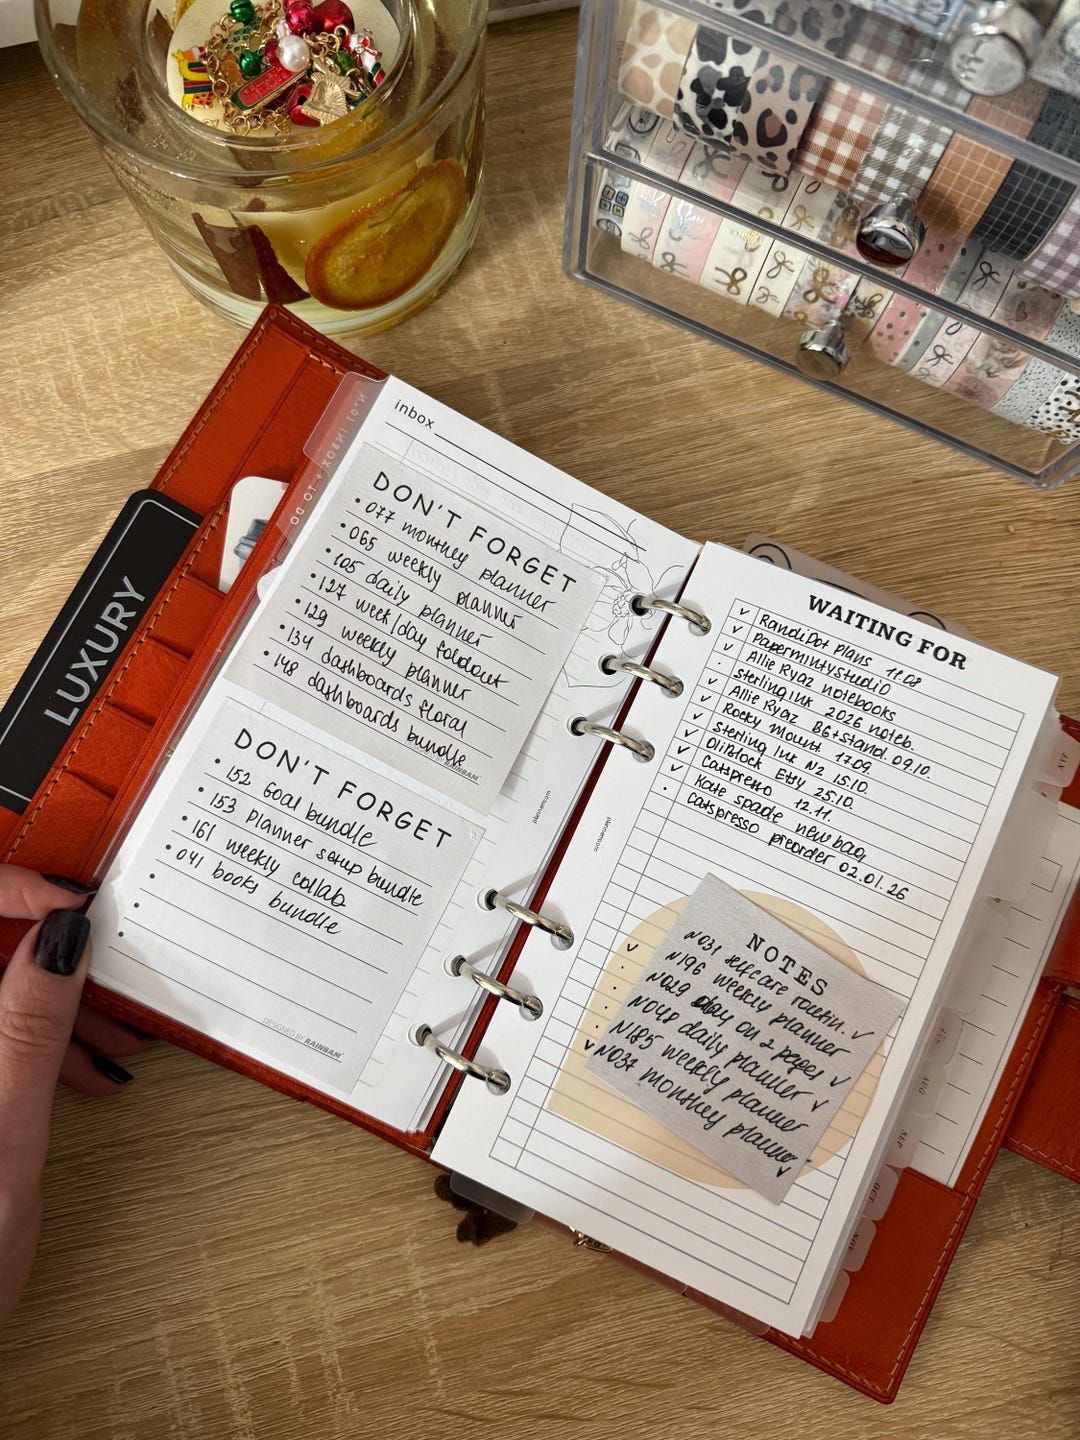 LUXURY
N°01 INBOX + TO DO
inbox
DON'T FORGET
• 077 monthly planner
• 065 weekly planner
• 105 daily planner
• 127 week/day foldout
• 129 weekly planner
• 134 dashboards floral
• 148 dashboards bundle
DESIGNED BY RAINBAM
DON'T FORGET
• 152 Goal bundle
• 153 planner setup bundle
• 161 weekly collab
• 041 books bundle
DESIGNED BY RAINBAM
plannersom
plannersom
WAITING FOR
✓ RandiDot Plans 11.08
✓ Papermintystudio
· Allie Ryaz notebooks
✓ Sterling Ink 2026 noteb.
✓ Allie Ryaz B6+stand. 09.10.
✓ Rocky Mount. 17.09.
✓ Sterling Ink N2 15.10.
✓ Oliblock Etsy 25.10.
✓ Catspresso 12.11.
Kate spade new bag
· Catspresso preorder 02.01.26
NOTES
✓ N031 selfcare routin. ✓
· N196 weekly planner
· N029 day on 2 pages ✓
· N048 daily planner ✓
· N185 weekly planner
✓ N037 monthly planner ✓
JAN
AUG
SEP
OCT
NOV